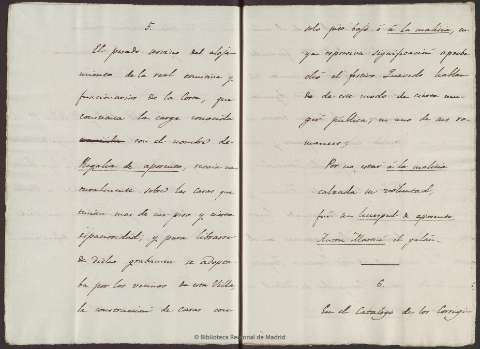 5.
El pesado servicio del aloja-
miento de la real comitiva y
funcionarios de la Corte, que
constituia la carga conocida
con el nombre de
Regalia de aposento, recaia na-
turalmente sobre las casas que
tenian mas de un piso y cierta
espaciosidad, y para librarse
de dicho gravamen se adopta-
ba por los vecinos de esta Villa
la construccion de casas con
solo piso bajo ó á la malicia, cu-
ya espresiva significacion aprobe-
chó el festivo Quevedo hablan-
do de este modo de cierta mu-
ger publica, en uno de sus ro-
mances;
Por no estar á la malicia
calzada su voluntad,
fué su huesped de aposento
Anton Martin el galán.
6.
En el Catalogo de los Corregi-
© Biblioteca Regional de Madrid